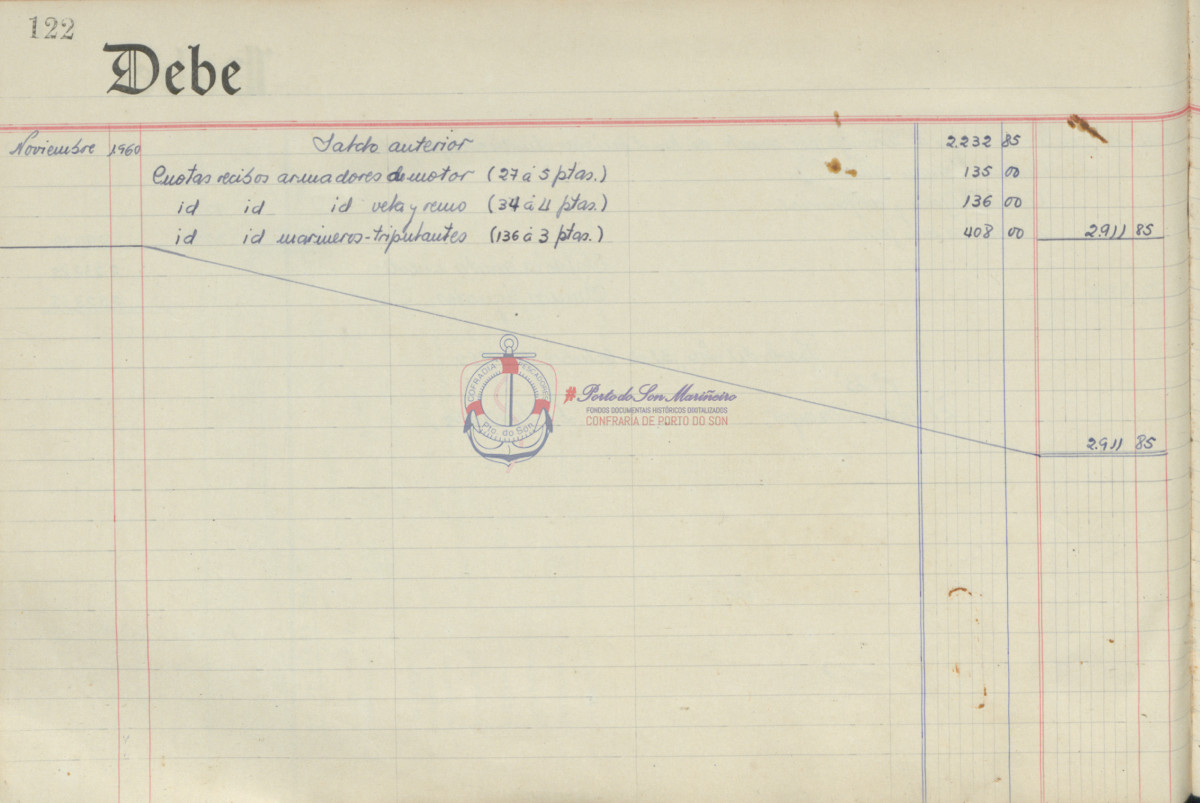 122
Debe
Noviembre 1960 Saldo anterior 2.232 85
Cuotas recibos armadores de motor (27 á 5 ptas.) 135 00
id id id vela y remo (34 á 4 ptas.) 136 00
id id marineros-triputantes (136 á 3 ptas.) 408 00 2.911 85
COFRADIA PESCADORES
Pto. do Son
#Porto do Son Mariñeiro
FONDOS DOCUMENTAIS HISTÓRICOS DIXITALIZADOS
CONFRARÍA DE PORTO DO SON
2.911 85